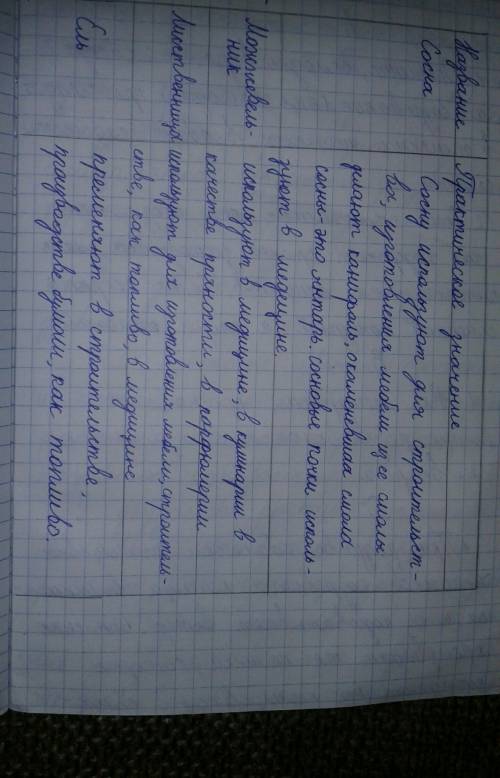 Название Практическое значение
Сосна Сосну используют для строительст-
ва, изготовления мебели из ее смолы
делают канифоль, окаменевшая смола
сосны - это янтарь. сосновые почки исполь-
зуют в медицине.
Можжевель- используют в медицине, в кулинарии в
ник качестве пряности, в парфюмерии
Лиственница используют для изготовления мебели, строитель-
стве, как топливо, в медицине
Ель пременяют в строительстве,
производстве бумаги, как топливо.